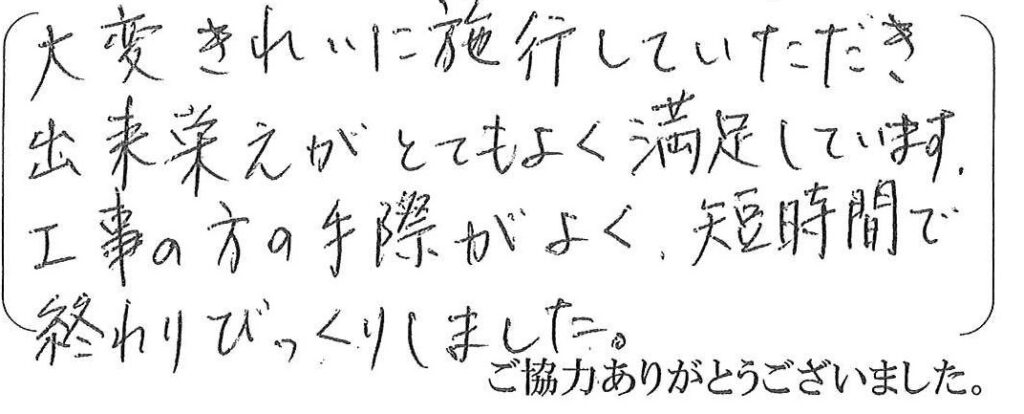 大変きれいに施行していただき
出来栄えがとてもよく満足しています.
工事の方の手際がよく、短時間で
終わりびっくりしました。
ご協力ありがとうございました。